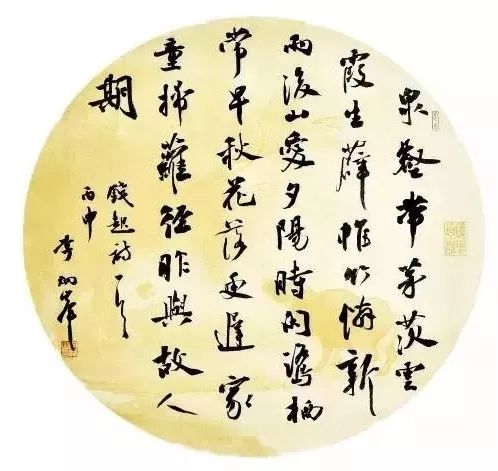 泉壑帶茅茨雲
霞生薜帷竹憐新
雨後山愛夕陽時閑鷺栖
常早秋花落更遲家
童掃蘿徑昨與故人
期
錢起詩一首
丙申
李